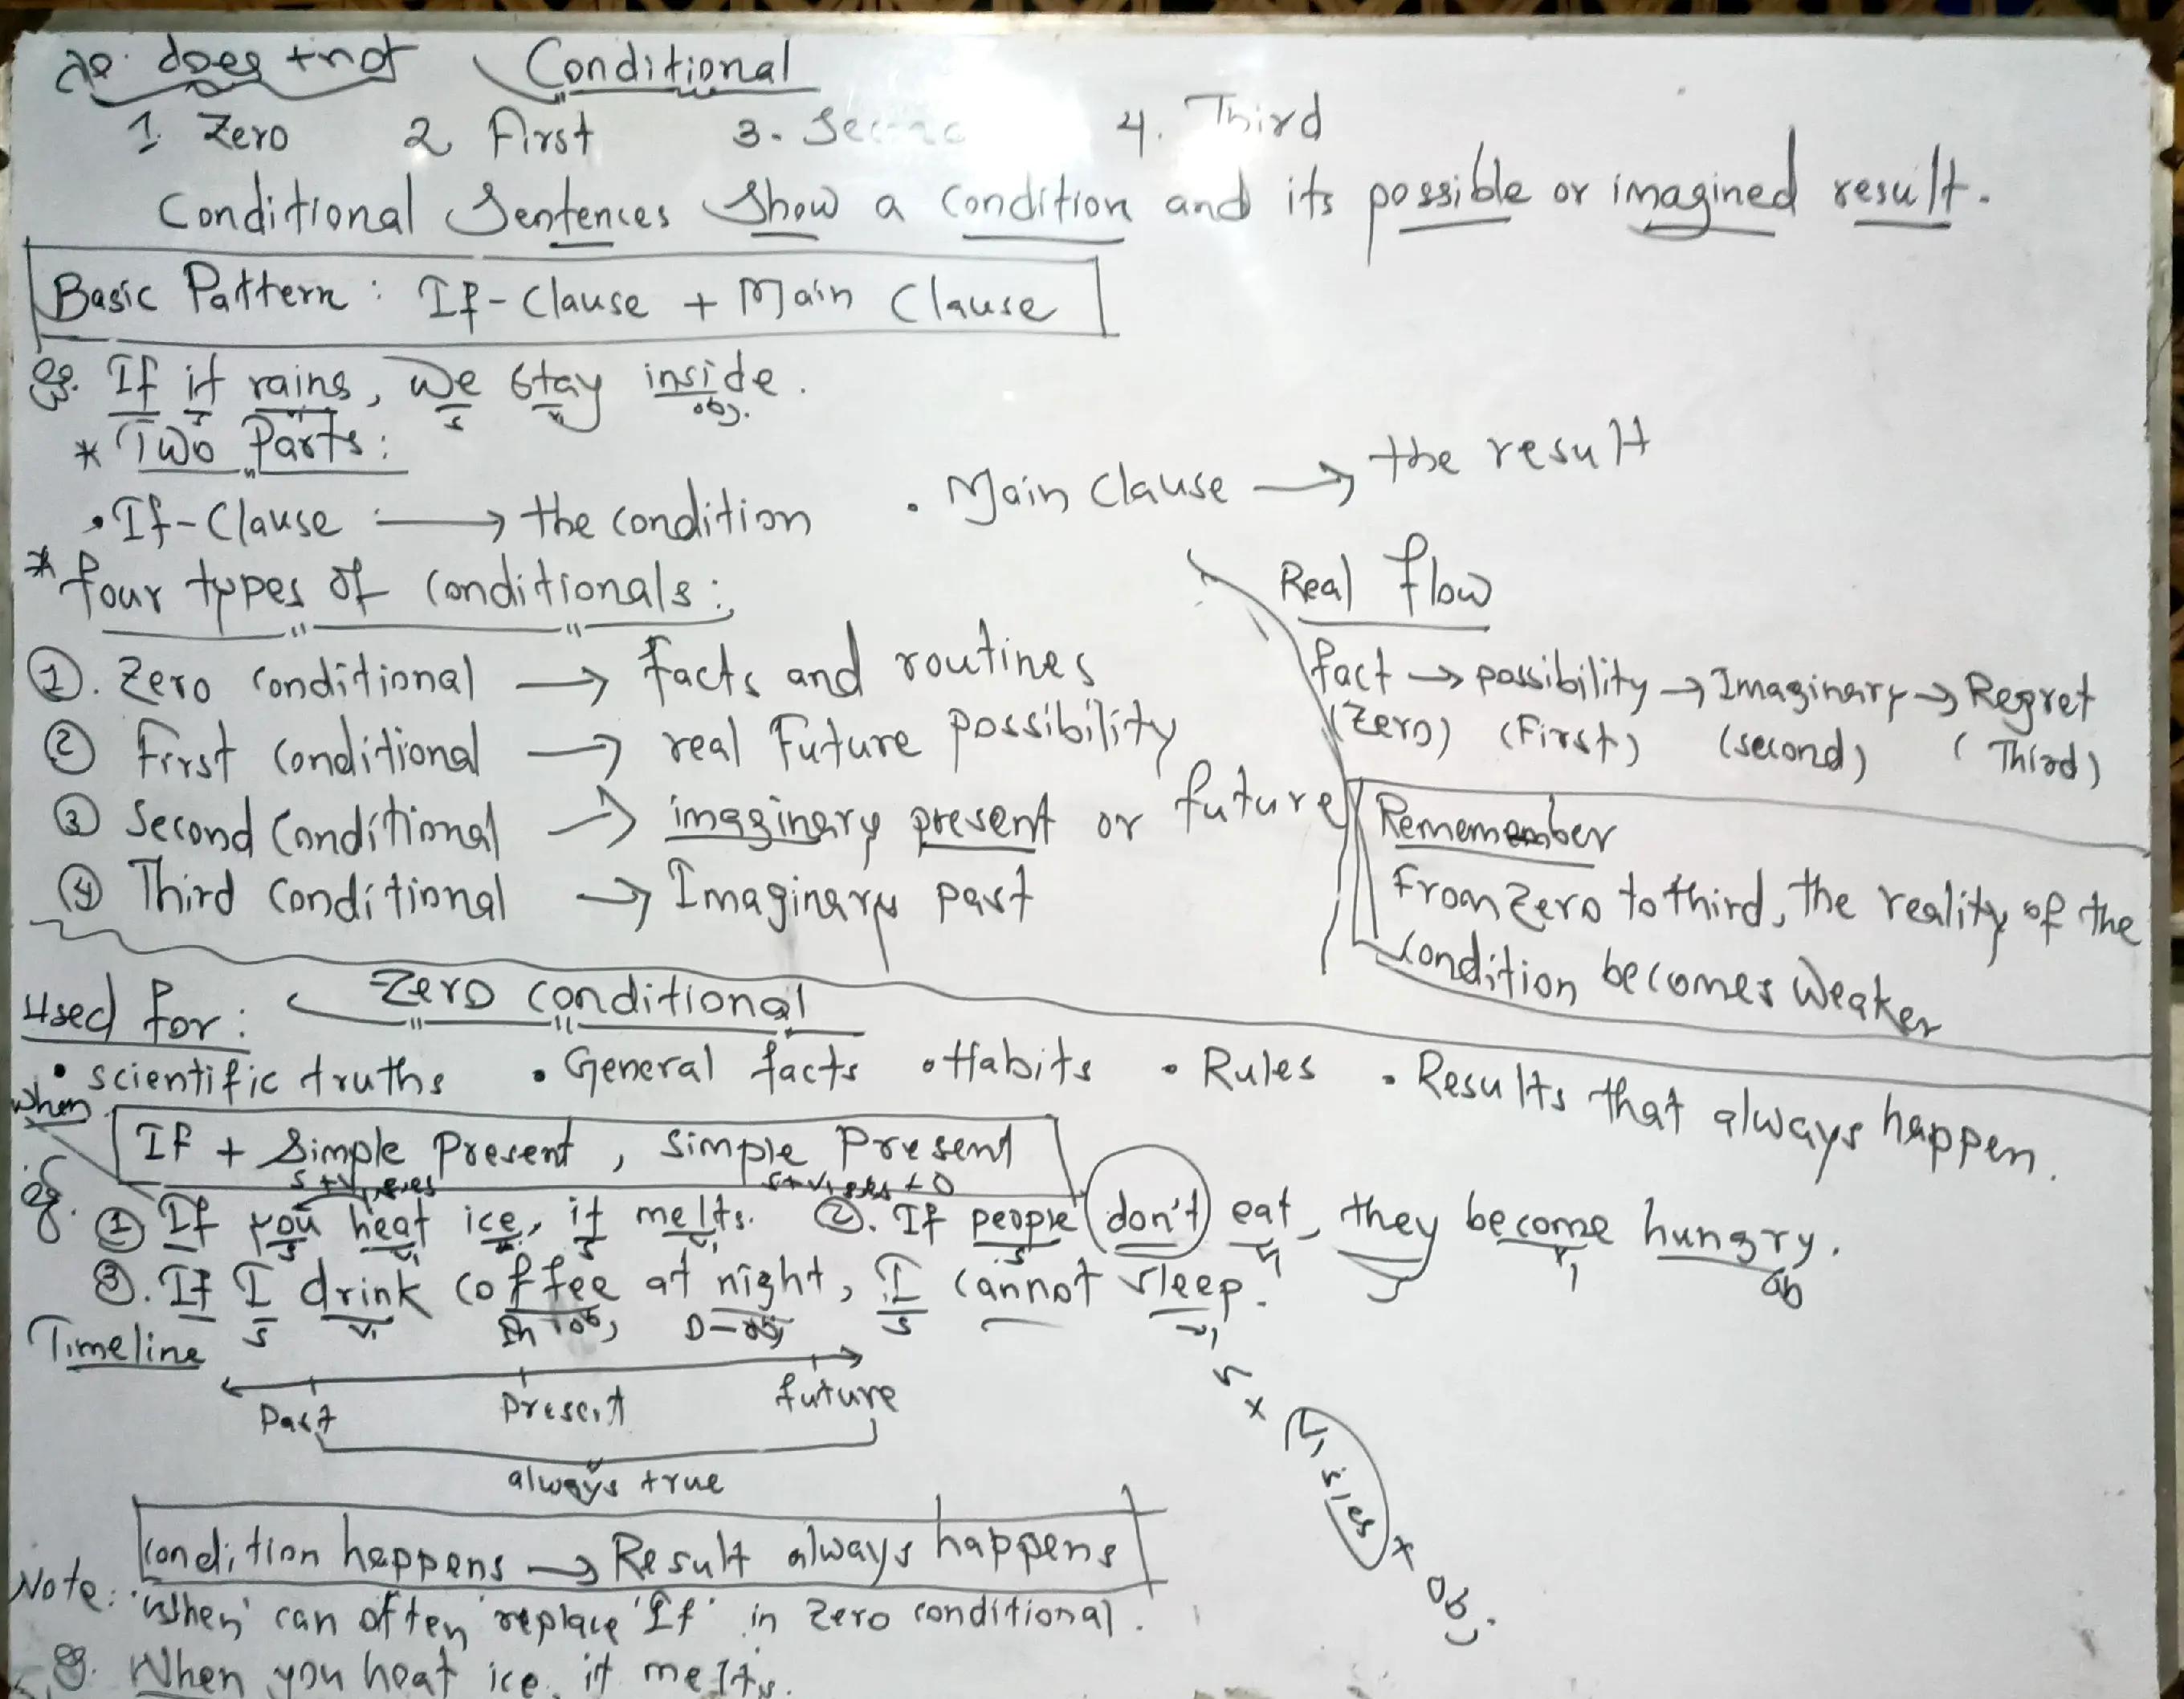 does + not Conditional
1. Zero 2. First 3. 4. Third
Conditional Sentences Show a condition and its possible or imagined result.
Basic Pattern: If-Clause + Main Clause
eg. If it rains, we stay inside.
s v s v obj.
* Two Parts:
• If-Clause → the condition • Main Clause → the result
* four types of conditionals:
① Zero conditional → facts and routines
② First conditional → real Future possibility
③ Second Conditional → imaginary present or future
④ Third Conditional → Imaginary past
Real flow
fact → possibility → Imaginary → Regret
(Zero) (First) (second) (Third)
Rememember
From Zero to third, the reality of the
condition becomes weaker
Zero conditional
Used for:
• scientific truths • General facts • Habits • Rules • Results that always happen.
When
If + Simple Present, Simple Present
eg. ① If you heat ice, it melts. ②. If people don't eat, they become hungry.
③. If I drink coffee at night, I cannot sleep.
Timeline
Past Present future
always true
Condition happens → Result always happens
Note: 'When' can often replace 'If' in Zero conditional.
eg. When you heat ice, it melts.